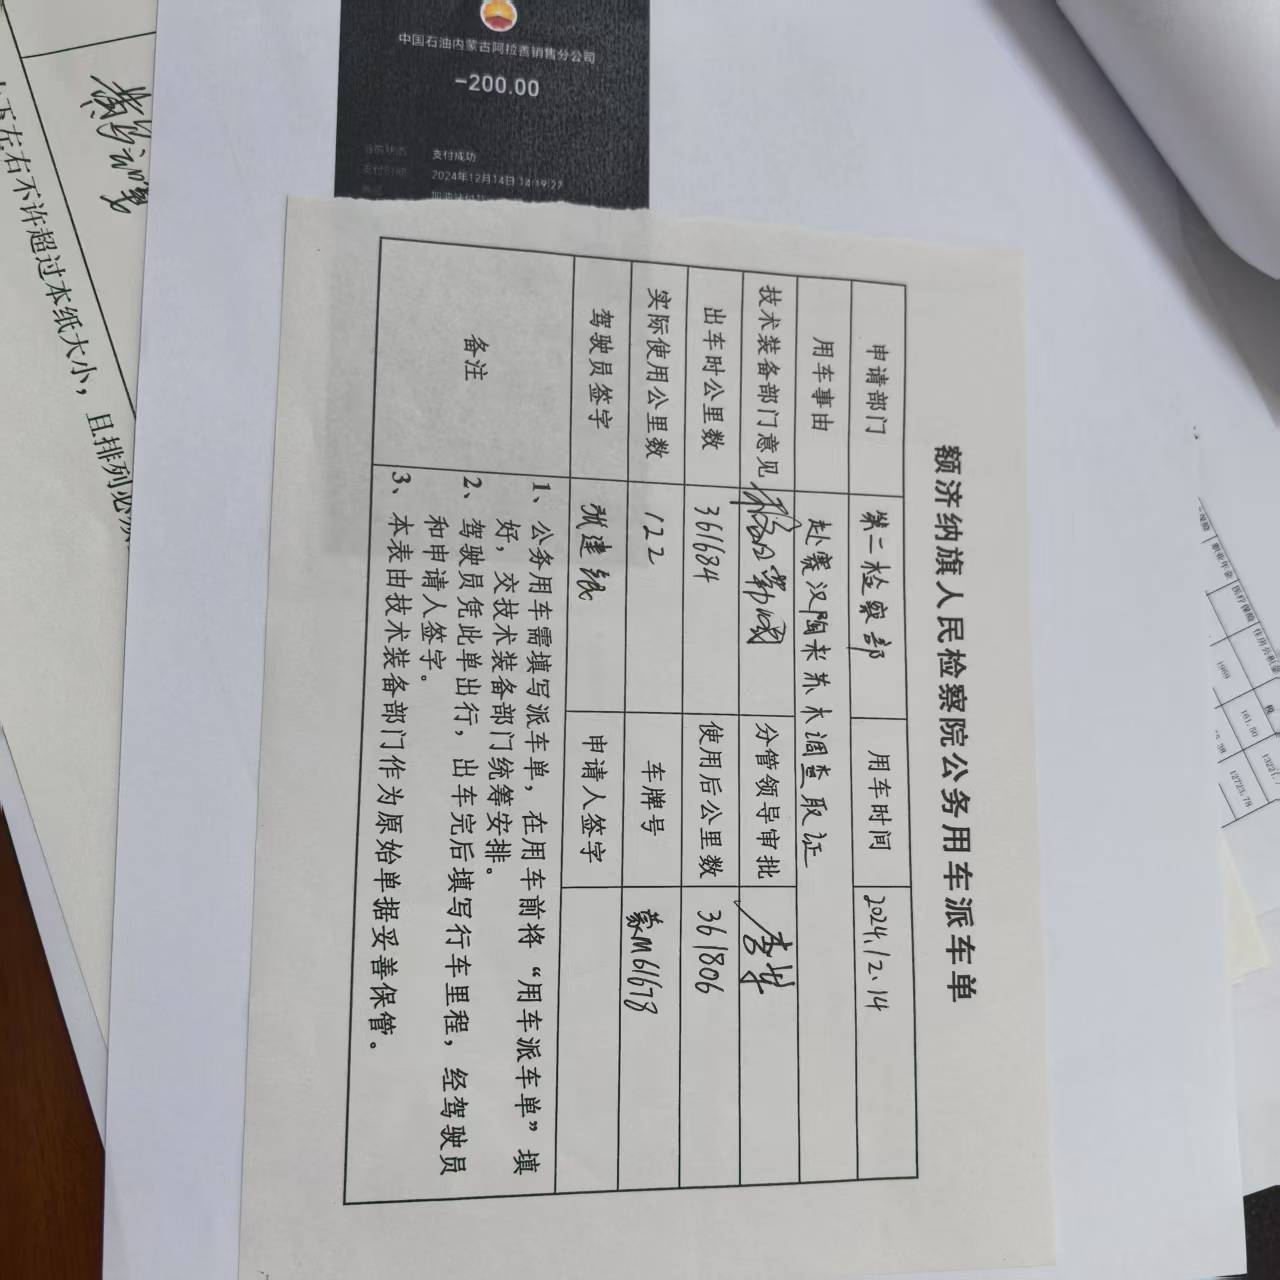 中国石油内蒙古阿拉善销售分公司
-200.00
当前状态 支付成功
支付时间 2024年12月14日 14:19:27
左右不许超过本纸大小，且排列必
额济纳旗人民检察院公务用车派车单
申请部门 第二检察部 用车时间 2024.12.14
用车事由 赴赛汉陶来苏木调查取证
技术装备部门意见 分管领导审批
出车时公里数 361684 使用后公里数 361806
实际使用公里数 122 车牌号 蒙M61678
驾驶员签字 张建 申请人签字
备注
1、公务用车需填写派车单，在用车前将“用车派车单”填
好，交技术装备部门统筹安排。
2、驾驶员凭此单出行，出车完后填写行车里程，经驾驶员
和申请人签字。
3、本表由技术装备部门作为原始单据妥善保管。
职业年金
医疗保险
住房公积金
1969
161.50
12723.78